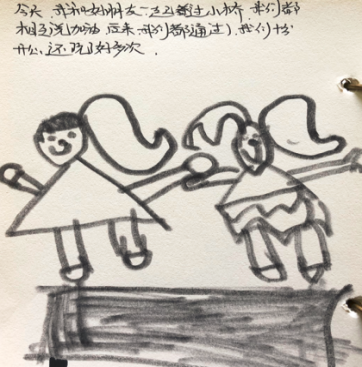 今天，我和好朋友一起过小桥，我们都
相互说加油，后来，我们都通过了，我们十分
开心，还玩了好多次。